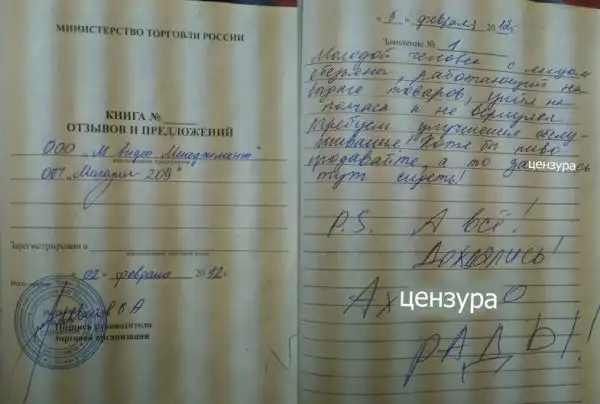 МИНИСТЕРСТВО ТОРГОВЛИ РОССИИ
КНИГА №
ОТЗЫВОВ И ПРЕДЛОЖЕНИЙ
ООО "М видео Менеджмент"
ОП "Магазин 209"
Зарегистрирован в
"02" февраля 2012г.
Подпись руководителя
торговой организации
"5" февраля 2012г.
Заявление № 1
Молодой человек с лицом
обезьяны, работающий на
выдаче товаров, ушёл на
полчаса и не вернулся.
Требуем улучшения обслу-
живания! Хотя бы пиво
продавайте, а то за цензура сь
тут сидеть!
P.S. А всё!
Дождались!
Ах цензура о
РАДЫ!